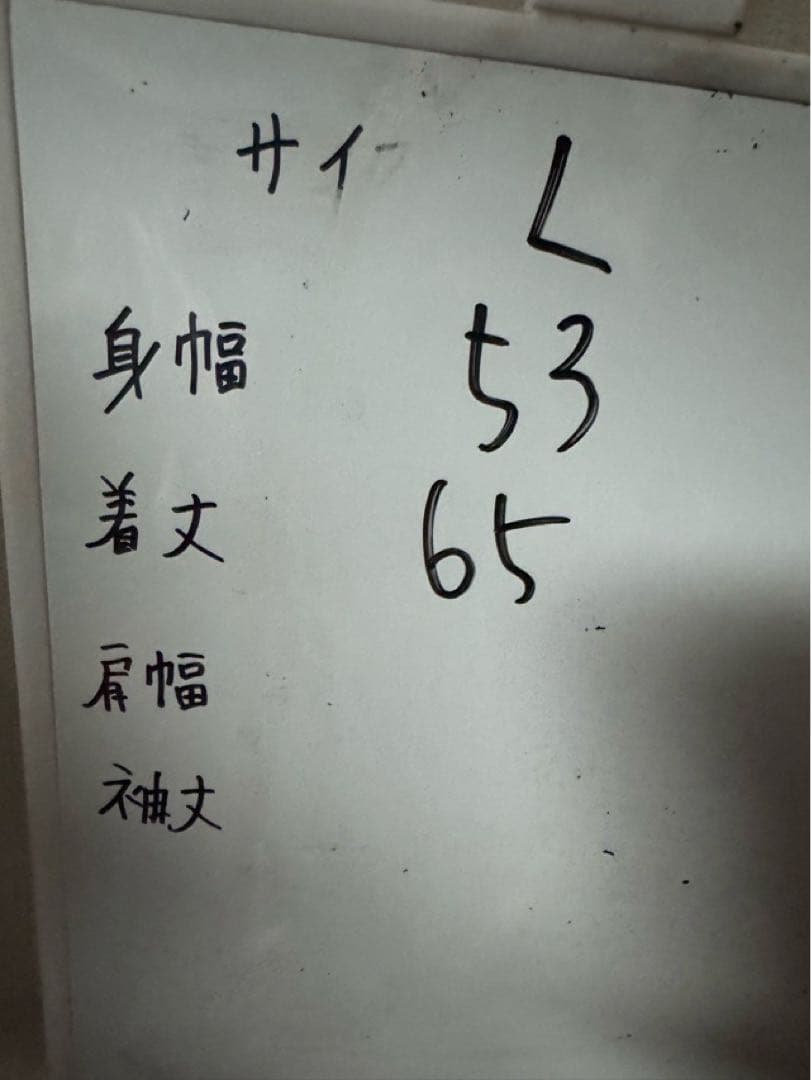 サイ L
身幅 53
着丈 65
肩幅
袖丈